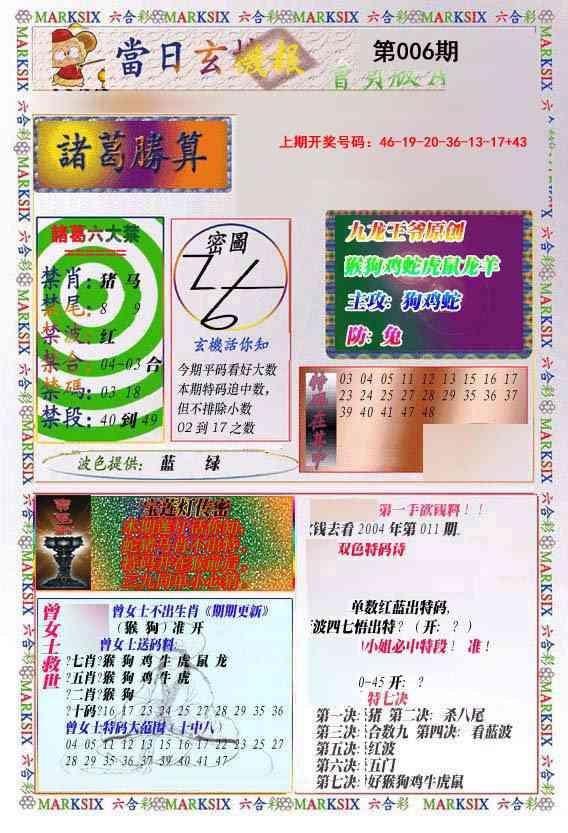 MARKSIX 六合彩 MARKSIX 六合彩 MARKSIX 六合彩 MARKSIX 六合彩 MARKSIX 六合彩
當日玄機報
第006期
諸葛勝算
上期开奖号码：46-19-20-36-13-17+43
諸葛六大禁
禁肖：猪 马
禁尾：8 9
禁波：红
禁合：04-03合
禁碼：03 18
禁段：40到49
密圖
玄機活你知
今期平码看好大数
本期特码追中数，
但不排除小数
02 到 17 之数
九龙王爷原创
猴狗鸡蛇虎鼠龙羊
主攻：狗鸡蛇
防：兔
特码在其中
03 04 05 11 12 13 15 16 17
23 24 25 27 28 29 35 36 37
39 40 41 47 48
波色提供： 蓝 绿
宝莲灯传密
第一手欲钱料！！
钱去看 2004 年第 011 期.
双色特码诗
单数红蓝出特码，
波四七悟出特？（开：？）
小姐必中特段！ 准！
0-45 开：？
曾女士救世
曾女士不出生肖《期期更新》
（猴 狗）准 开
曾女士送码料:
?七肖?猴 狗 鸡 牛 虎 鼠 龙
?五肖?猴 狗 鸡 牛 虎
?二肖?猴 狗
?十码?16 17 23 24 25 27 28 29 35 36
曾女士特码大范围（十中八）
04 05 11 12 13 15 16 17 22 23 25 27
28 29 35 36 37 39 40 41 47
特七决
第一决:猪 第二决: 杀八尾
第三决:合数九 第四决: 看蓝波
第五决:红波
第六决:五门
第七决:好猴狗鸡牛虎鼠
MARKSIX 六合彩 MARKSIX 六合彩 MARKSIX 六合彩 MARKSIX 六合彩 MARKSIX